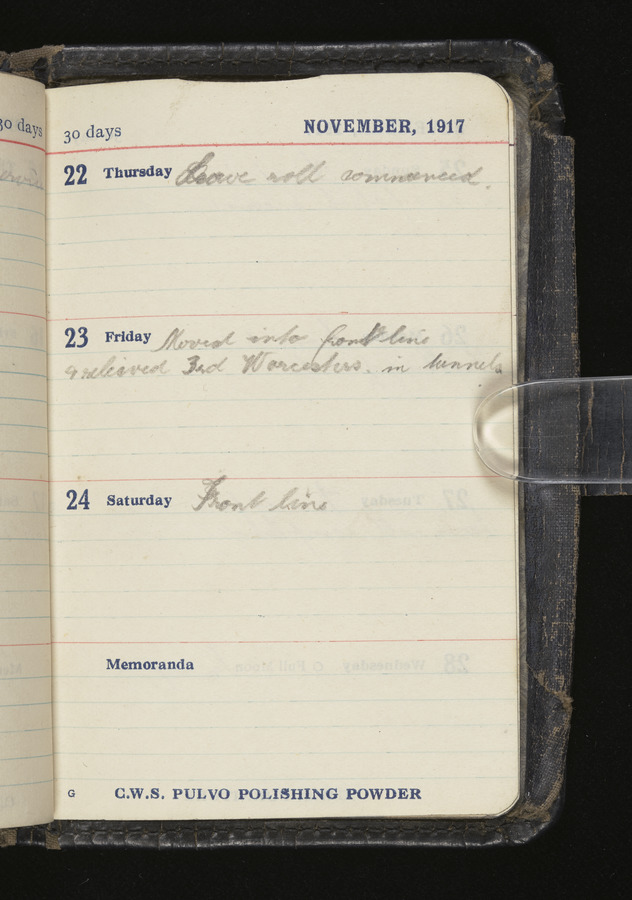 30 days
30 days NOVEMBER, 1917
22 Thursday Leave roll commenced.
23 Friday Moved into front line
& relieved 3rd Worcesters. in tunnels
24 Saturday Front line
Memoranda
G C.W.S. PULVO POLISHING POWDER